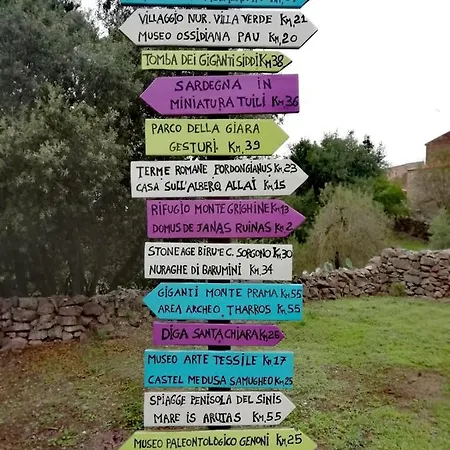 VILLAGGIO NUR. VILLA VERDE KM.21
MUSEO OSSIDIANA PAU KM.20
TOMBA DEI GIGANTI SIDDI KM38
SARDEGNA IN
MINIATURA TUILI KM.36
PARCO DELLA GIARA
GESTURI KM.39
TERME ROMANE FORDONGIANUS KM.23
CASA SULL'ALBERO ALLAI KM.15
RIFUGIO MONTE GRIGHINE KM.13
DOMUS DE JANAS RUINAS KM.2
STONE AGE BIRU'E C. SORGONO KM.30
NURAGHE DI BARUMINI KM.34
GIGANTI MONTE PRAMA KM.55
AREA ARCHEO. THARROS KM.55
DIGA SANTA CHIARA KM.26
MUSEO ARTE TESSILE KM.17
CASTEL MEDUSA SAMUGHEO KM.25
SPIAGGE PENISOLA DEL SINIS
MARE IS ARUTAS KM.55
MUSEO PALEONTOLOGICO GENONI KM.25